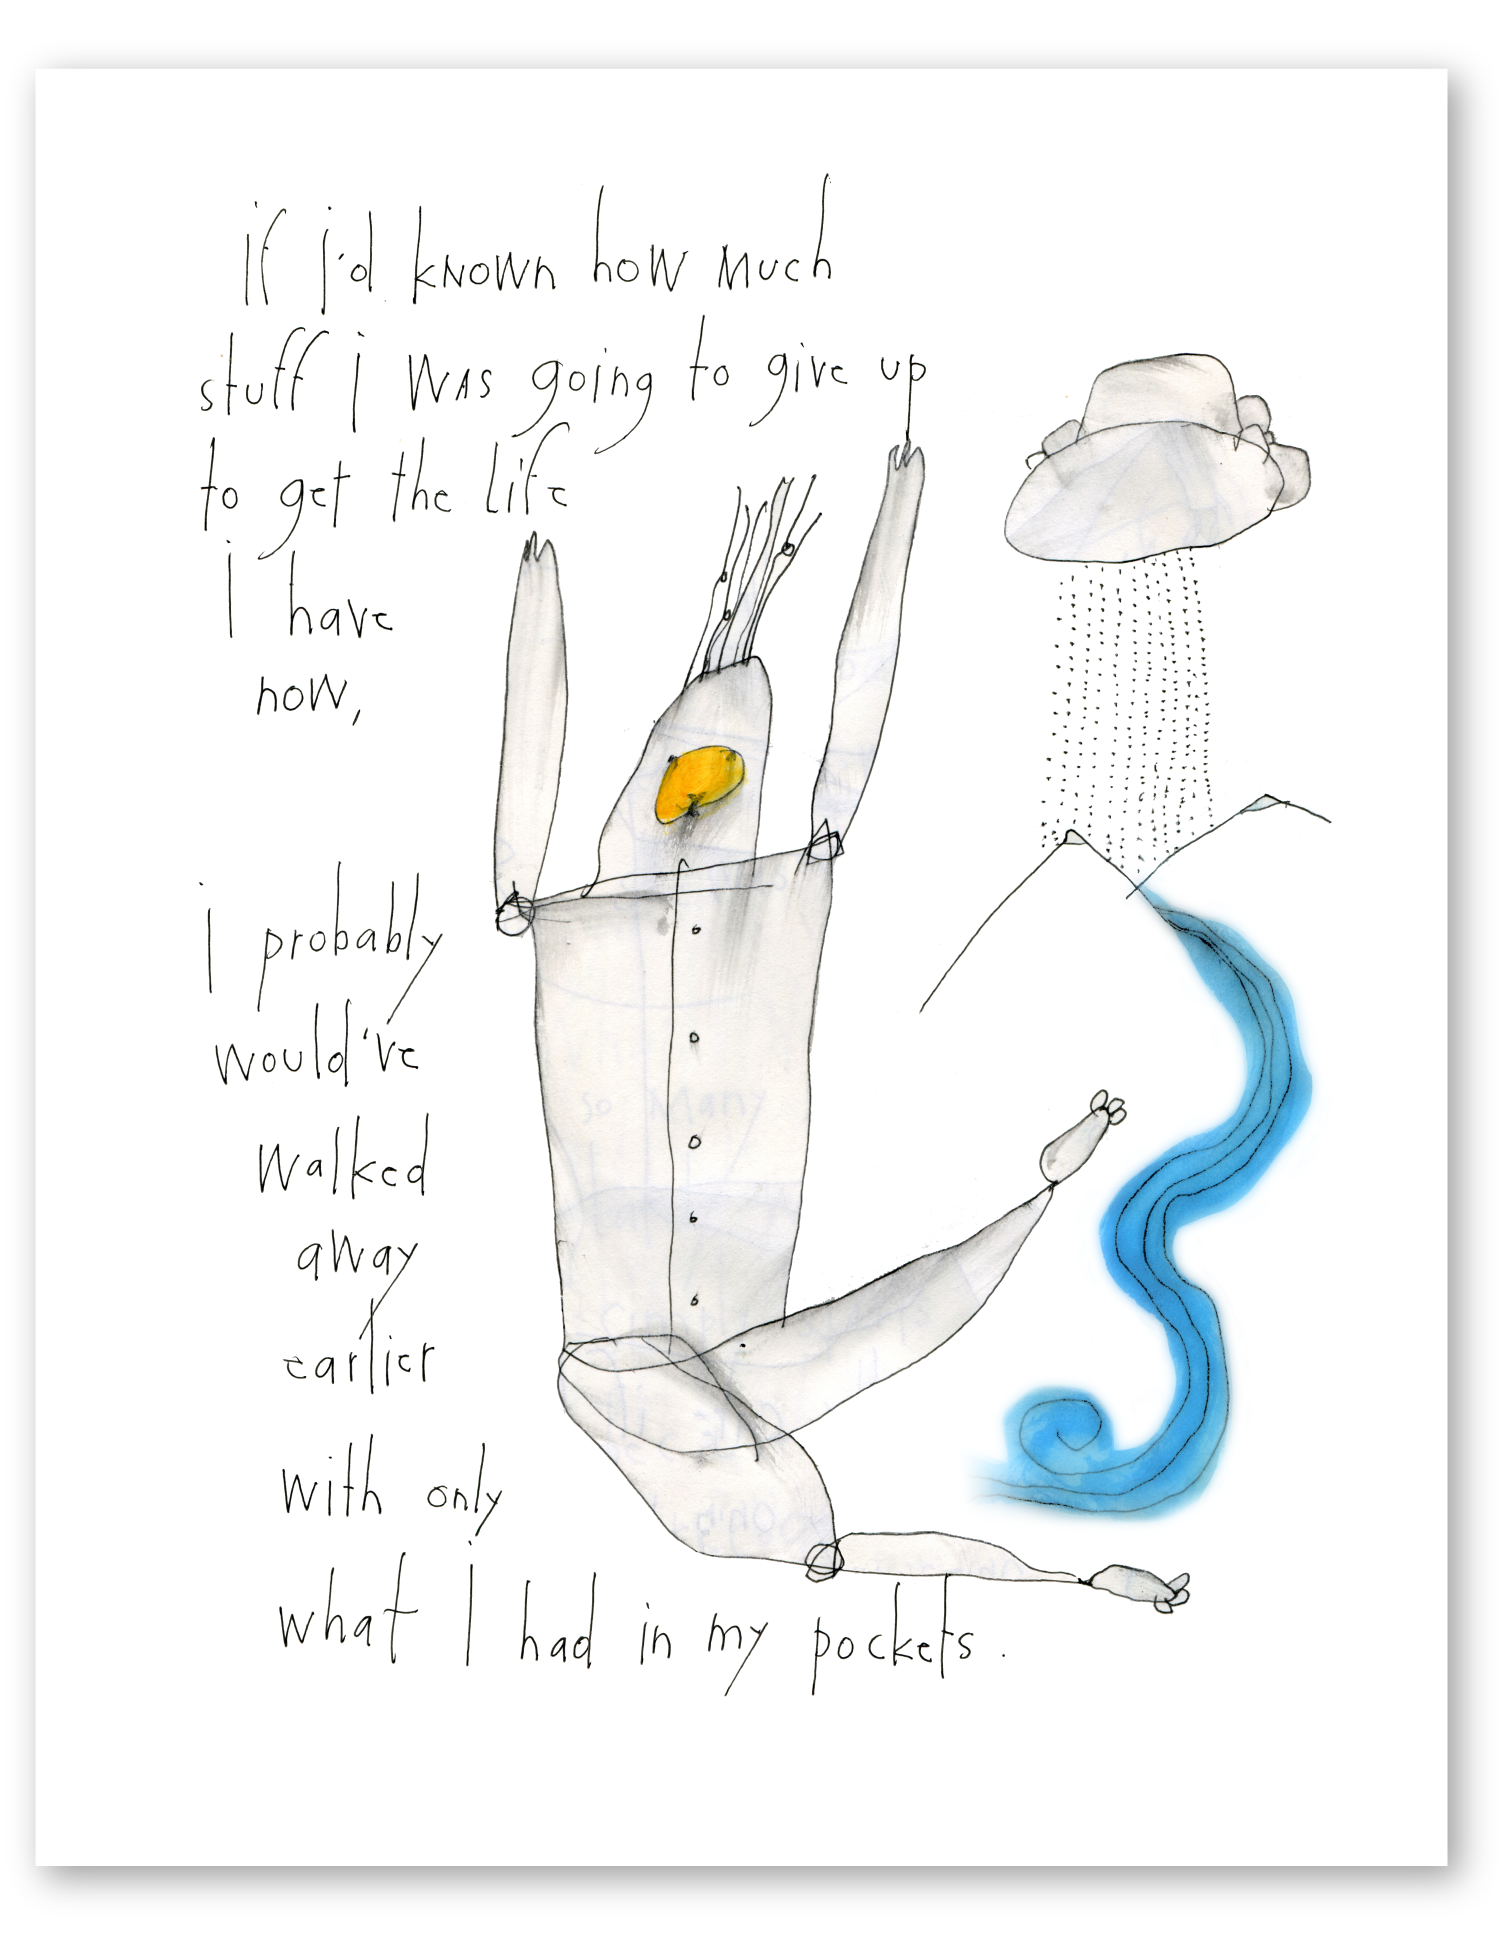 if i'd known how much
stuff i was going to give up
to get the life
i have
now,
i probably
would've
walked
away
earlier
with only
what i had in my pockets.